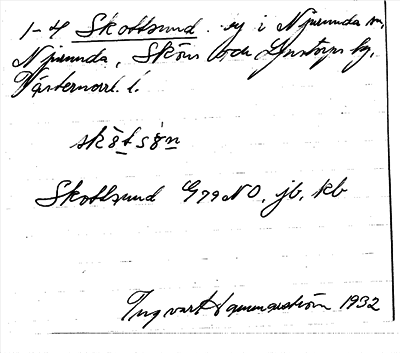 1-4 Skottsund. ey i Njurunda sn,
Njurunda, Sköns och Ljustorps tg,
Västernorrl. l.
sko̊̀t so̊̀n
Skottsund G79NO, jb, kb
Ingvar 1932